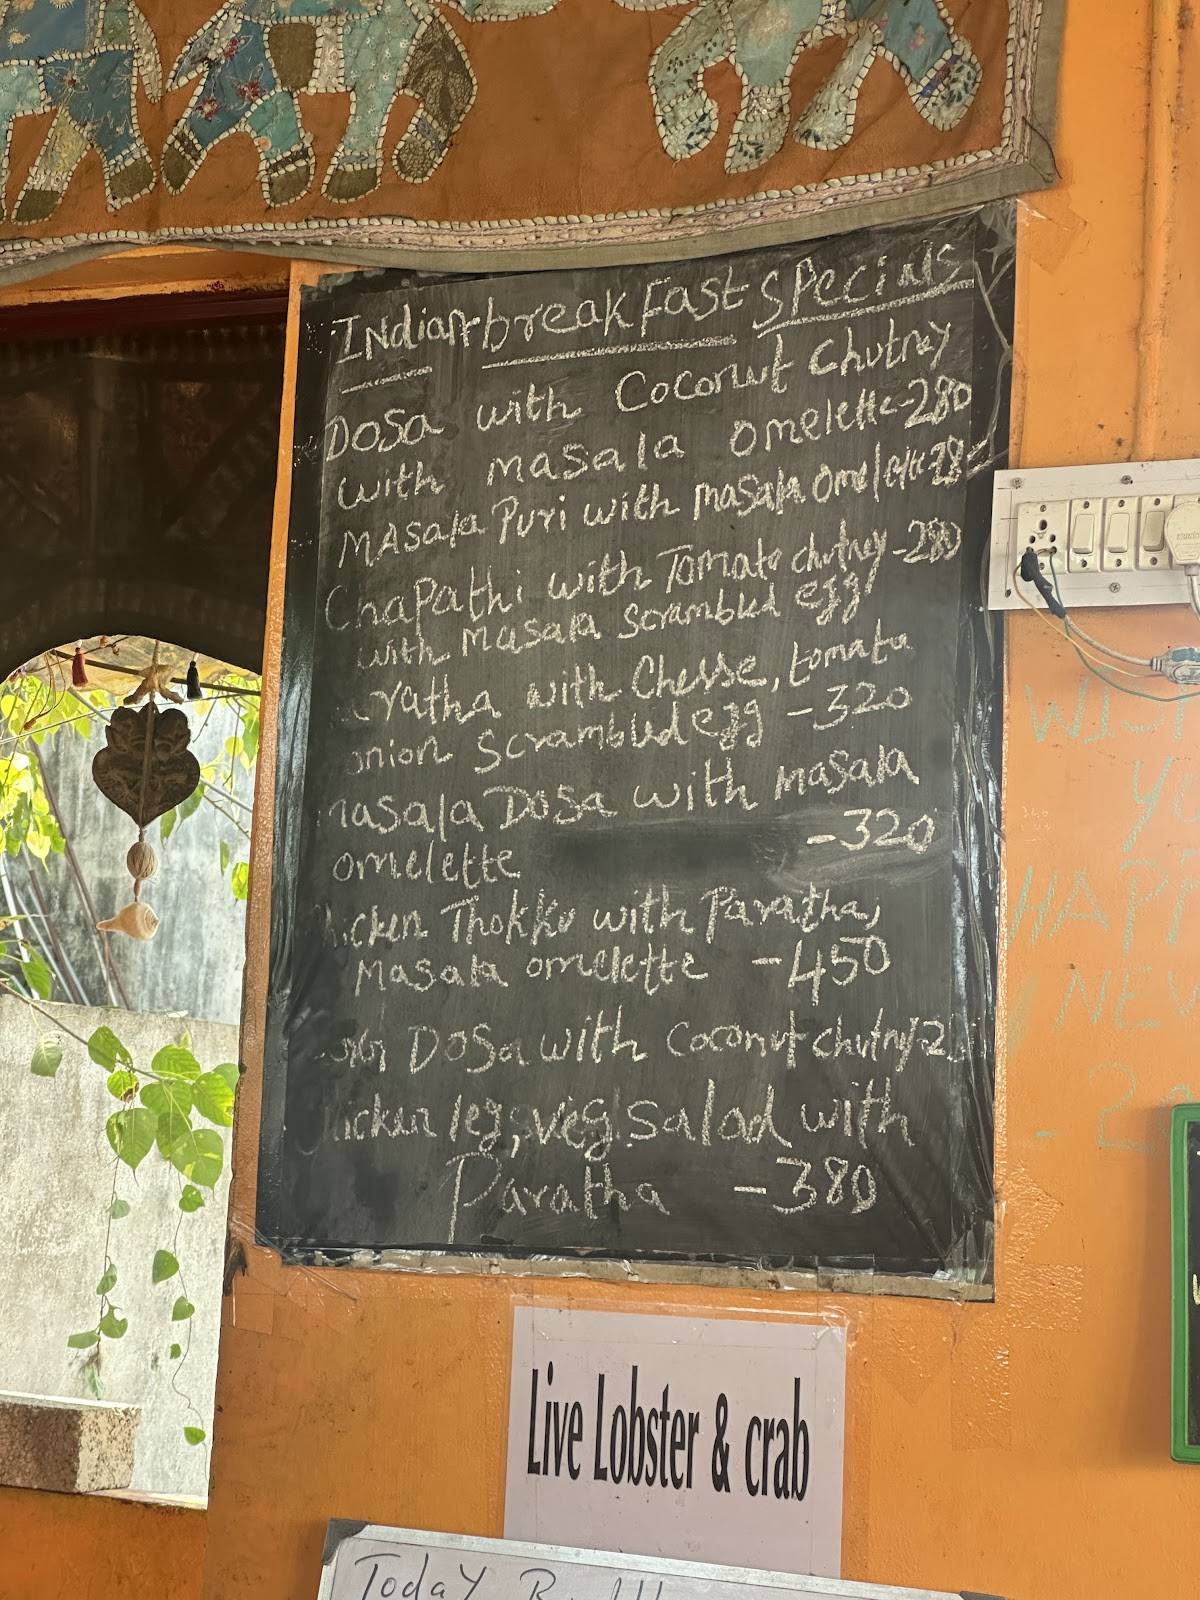 INdian breakFast SPecials
DoSa with Coconut Chutney
with masala omelette-280
MAsala Puri with masala omelette-28
ChaPathi with Tomato chutney-280
with masala scrambled egg
ratha with Chesse, tomato
onion scrambled egg -320
masala DoSa with masala
omelette -320
hicken Thokku with Paratha,
Masala omelette -450
DoSa with coconut chutney-2
hicken leg, veg salad with
Paratha -380
Live Lobster & crab
TodaY
WIS
Yo
HAPP
NEW
- 2